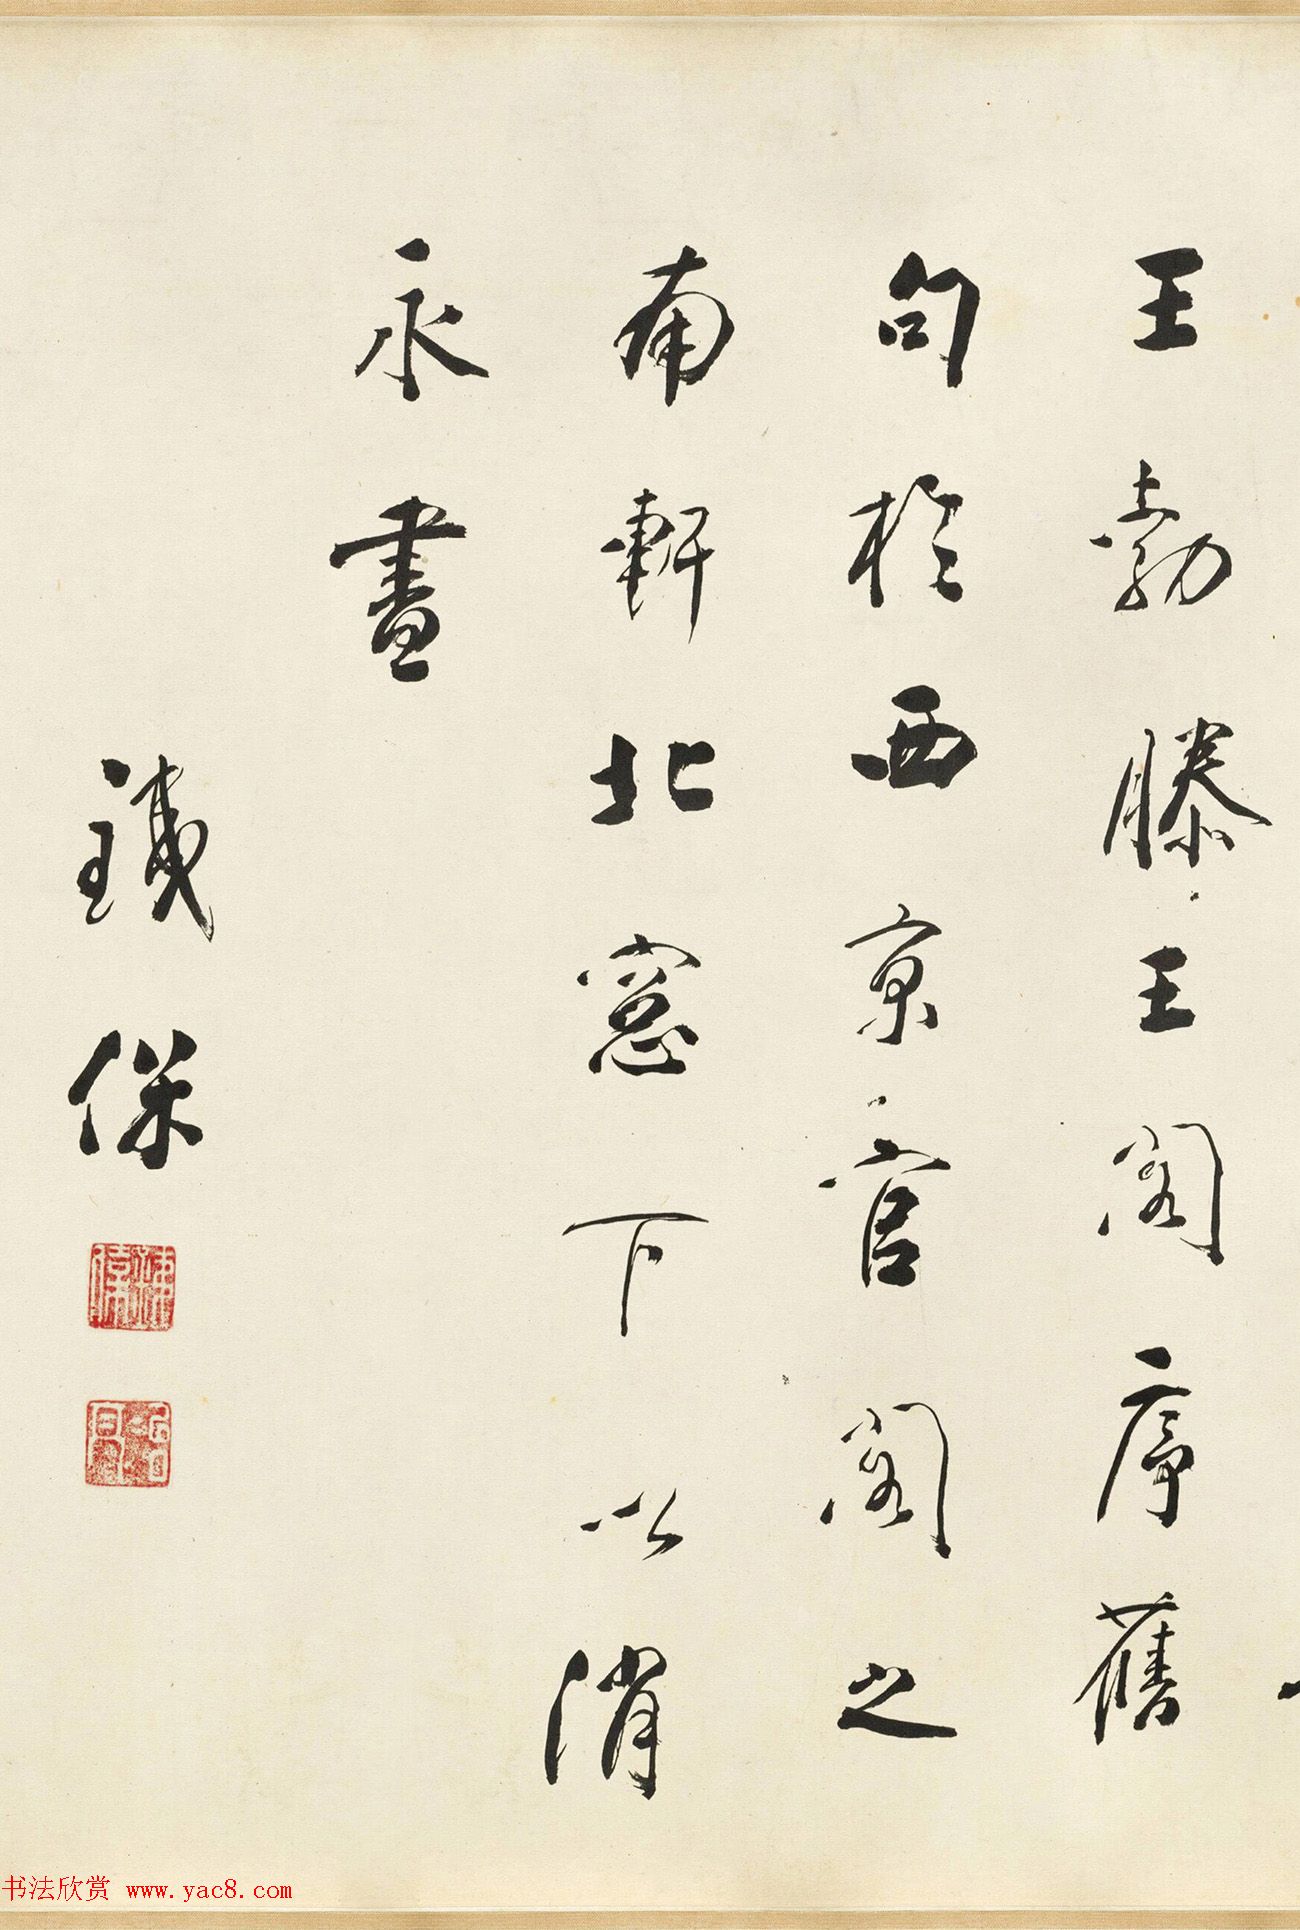 王勃滕王阁序舊
句於西京官阁之
南軒北窓下以消
永晝
鐵保
书法欣赏 www.yac8.com